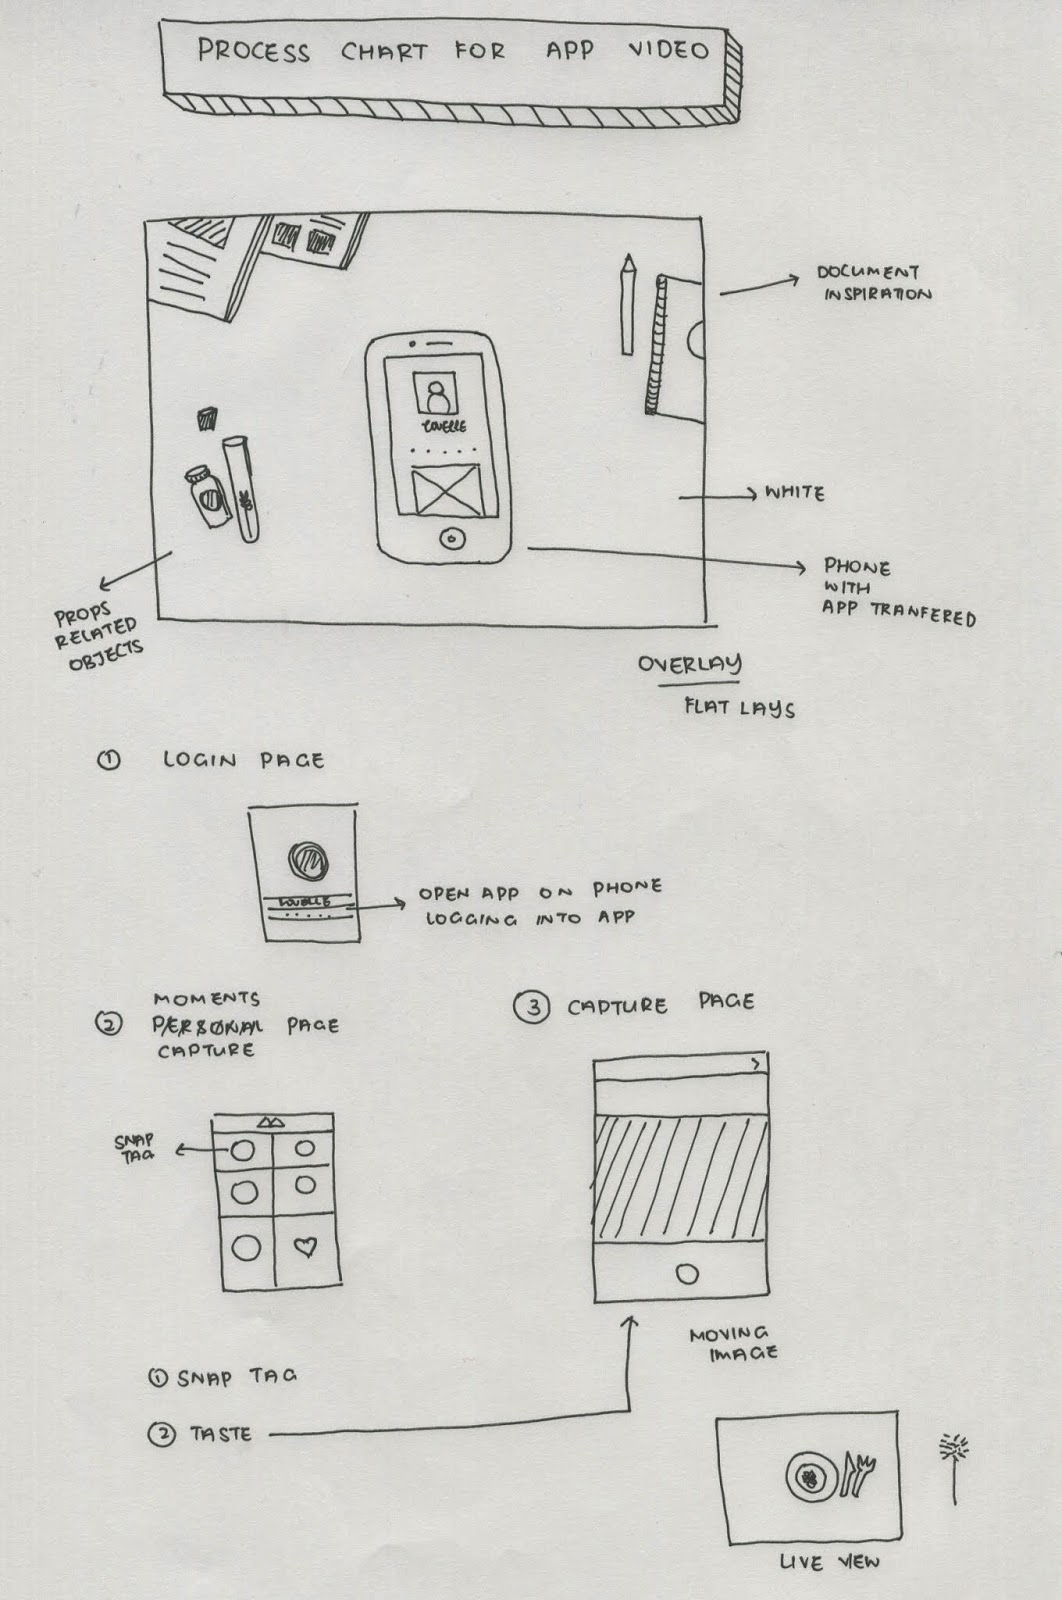 PROCESS CHART FOR APP VIDEO
DOCUMENT
INSPIRATION
LOVELLE
WHITE
PHONE
WITH
APP TRANFERED
PROPS
RELATED
OBJECTS
OVERLAY
FLAT LAYS
① LOGIN PAGE
LOVELLE
OPEN APP ON PHONE
LOGGING INTO APP
MOMENTS
② PERSONAL PAGE
CAPTURE
③ CAPTURE PAGE
SNAP
TAG
MOVING
IMAGE
① SNAP TAG
② TASTE
LIVE VIEW